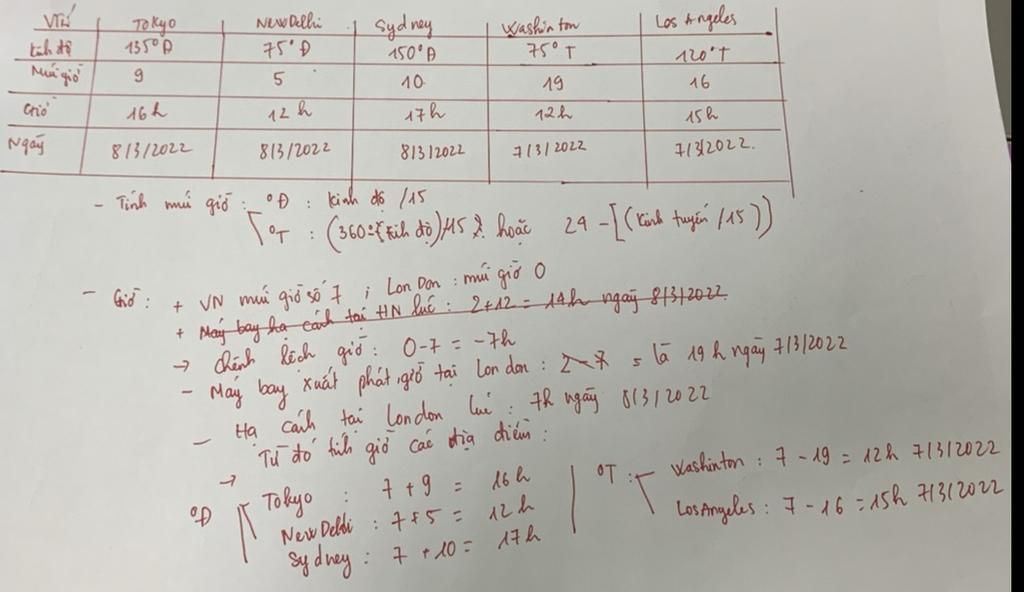 Vtrí Tokyo New Delhi Sydney Washinton Los Angeles
Kinh độ 135°Đ 75°Đ 150°Đ 75°T 120°T
Múi giờ 9 5 10 19 16
Giờ 16h 12h 17h 12h 15h
Ngày 8/3/2022 8/3/2022 8/3/2022 7/3/2022 7/3/2022.
- Tính múi giờ : °Đ : kinh độ /15
°T : (360 - kinh độ)/15 hoặc 24 - [(Kinh tuyến /15)]
- Giờ : + VN múi giờ số 7 ; LonDon : múi giờ 0
+ Máy bay hạ cánh tại HN lúc : 2+12 = 14h ngày 8/3/2022.
→ chênh lệch giờ : 0-7 = -7h
- Máy bay xuất phát, giờ tại London : 2-7 = là 19h ngày 7/3/2022
- Hạ cánh tại London lúc : 7h ngày 8/3/2022
Từ đó tính giờ các địa điểm :
→ °Đ Tokyo : 7 + 9 = 16h
New Delhi : 7 + 5 = 12h
Sydney : 7 + 10 = 17h
°T : Washinton : 7 - 19 = 12h 7/3/2022
Los Angeles : 7 - 16 = 15h 7/3/2022